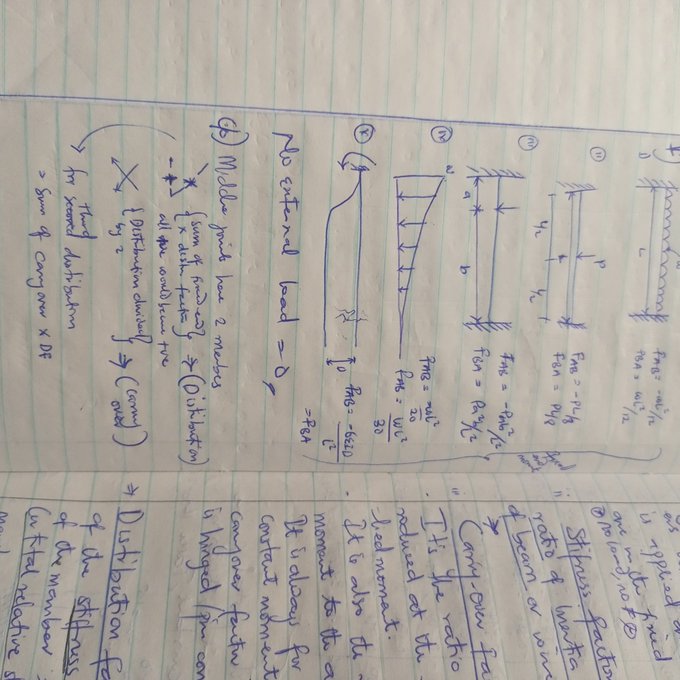 i)
w
L
FAB = -wL²/12
FBA = wL²/12
ii)
P
L/2
L/2
FAB = -PL/8
FBA = PL/8
iii)
a
b
FAB = -Pab²/L²
FBA = Pa²b/L²
fixed
end
moment
iv)
w
FAB = -wL²/20
FBA = wL²/30
v)
D
FAB = -6EID/L²
= FBA
No external load = 0,
Middle joints have 2 membes
{sum of fixed end}
{x distr. factor}
⇒ (Distribution)
all -ve would become +ve
{Distribution divided}
by 2
⇒ (carry over)
third
for second distribution
= Sum of carryover x DF
is applied
are
Stiffness factor
ratio of inertia
of beam or
iii
Carry-over fa
It is the ratio
induced at the
lied moment.
It is also the
moment to the a
It is always for
constant moment
carryover factor
is hinged/pin con
⇒ Distribution fa
of the stiffness
of the member
(total relative s